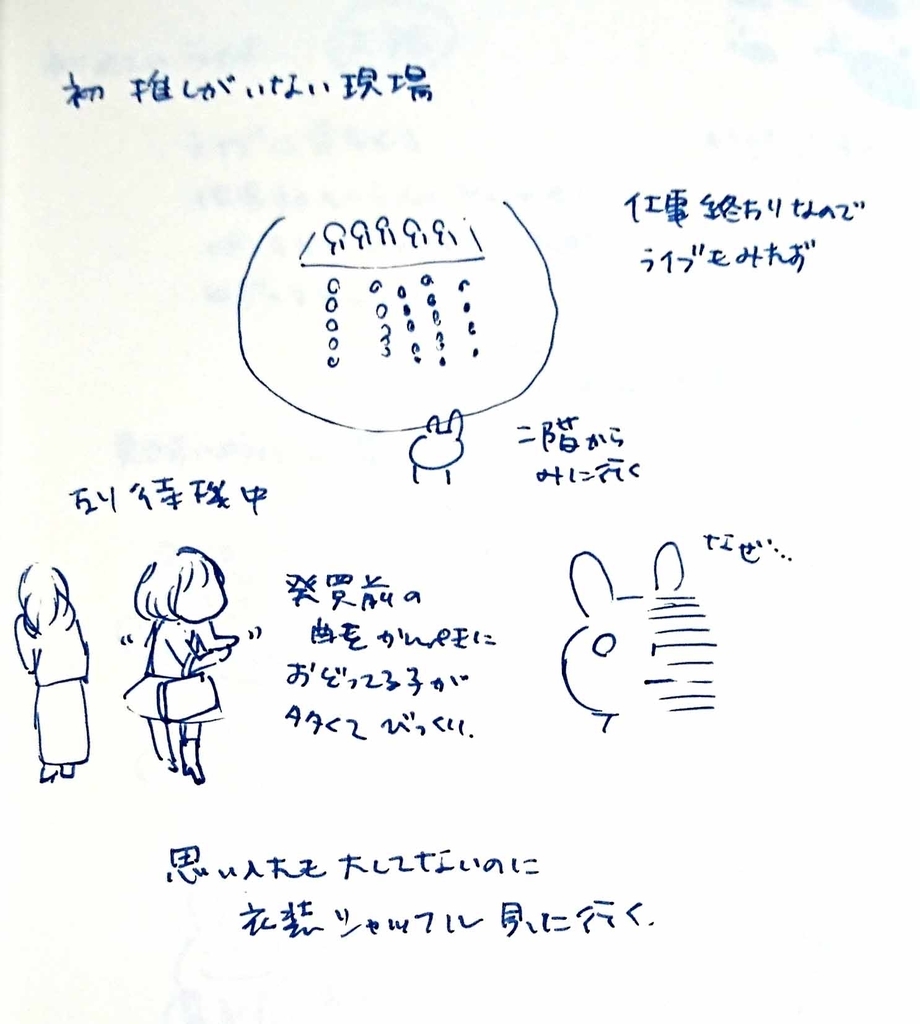 初 推しがいない現場
仕事終わりなので
ライブもみれず
二階から
みに行く
列待機中
発買前の
曲を かんぺきに
おどってる子が
タタくて びっくり.
なぜ…
思い入れも 大してないのに
衣装シャッフル 見に行く.